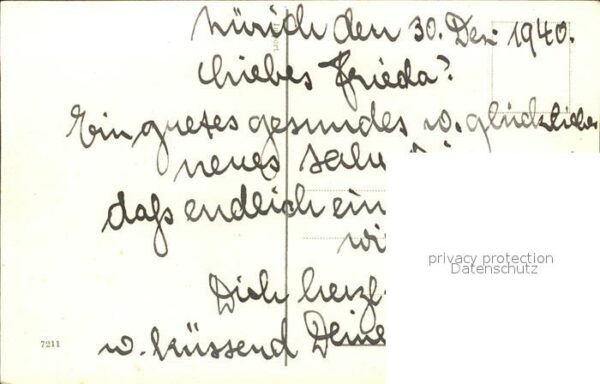 Zürich den 30. Dez. 1940.
Liebes Frieda?
Ein gutes gesundes u. glückliches
neues
daß endlich ein
Dich herzl.
u. küssend Deine
privacy protection
Datenschutz
7211